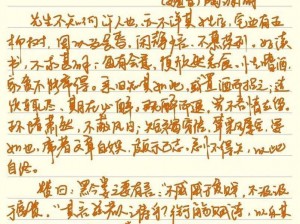 陶渊明
先生不知何许人也,亦不详其姓字,宅边有五
柳树,因以为号焉。闲静少言,不慕荣利。好读
书,不求甚解;每有会意,便欣然忘食。性嗜酒,
家贫不能常得。亲旧知其如此,或置酒而招之;造
饮辄尽,期在必醉。既醉而退,曾不吝情去留。
环堵萧然,不蔽风日;短褐穿结,箪瓢屡空,晏
如也。常著文章自娱,颇示己志。忘怀得失,以此
自终。
赞曰:黔娄之妻有言:“不戚戚于贫贱,不汲汲
于富贵。”其言兹若人之俦乎?衔觞赋诗,以乐其